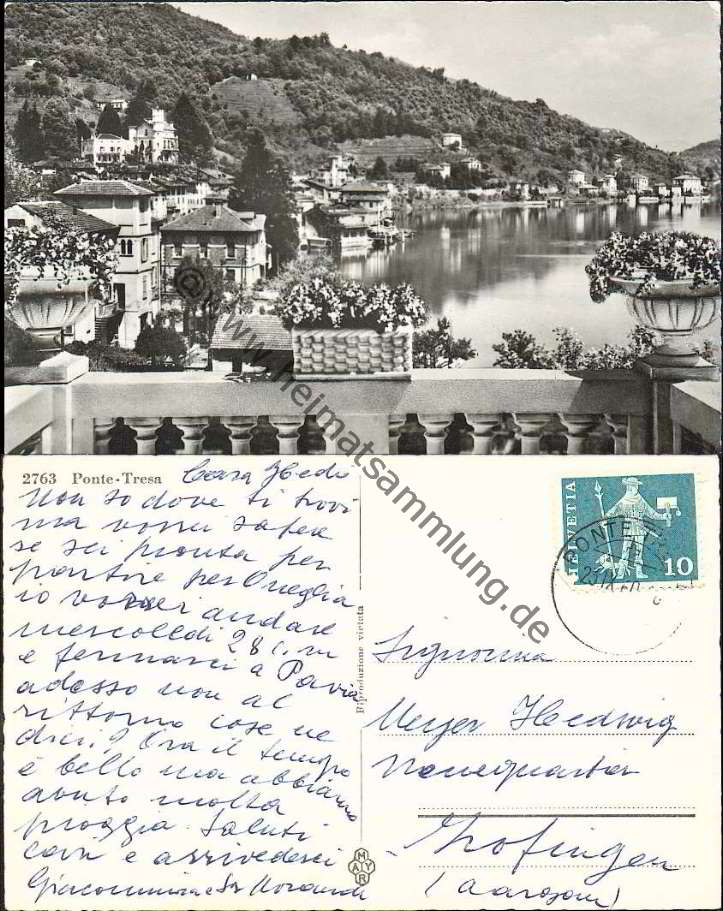 © www.heimatsammlung.de
2763 Ponte-Tresa Cara Hedi
Non so dove ti trovi
ma vorrei sapere
se sei pronta per
partire per Oneglia
io vorrei andare
mercoledì 28 c. m
e fermarci a Pavia
adesso non al
rittorno cose ne
dici? Ora il tempo
è bello ma abbiamo
avuto molta
pioggia. Saluti
cari e arrivederci
Giacomina e
Riproduzione vietata
MAYR
HELVETIA
10
PONTE
Signorina
Meyer Hedwig
Neuequartier
Zofingen